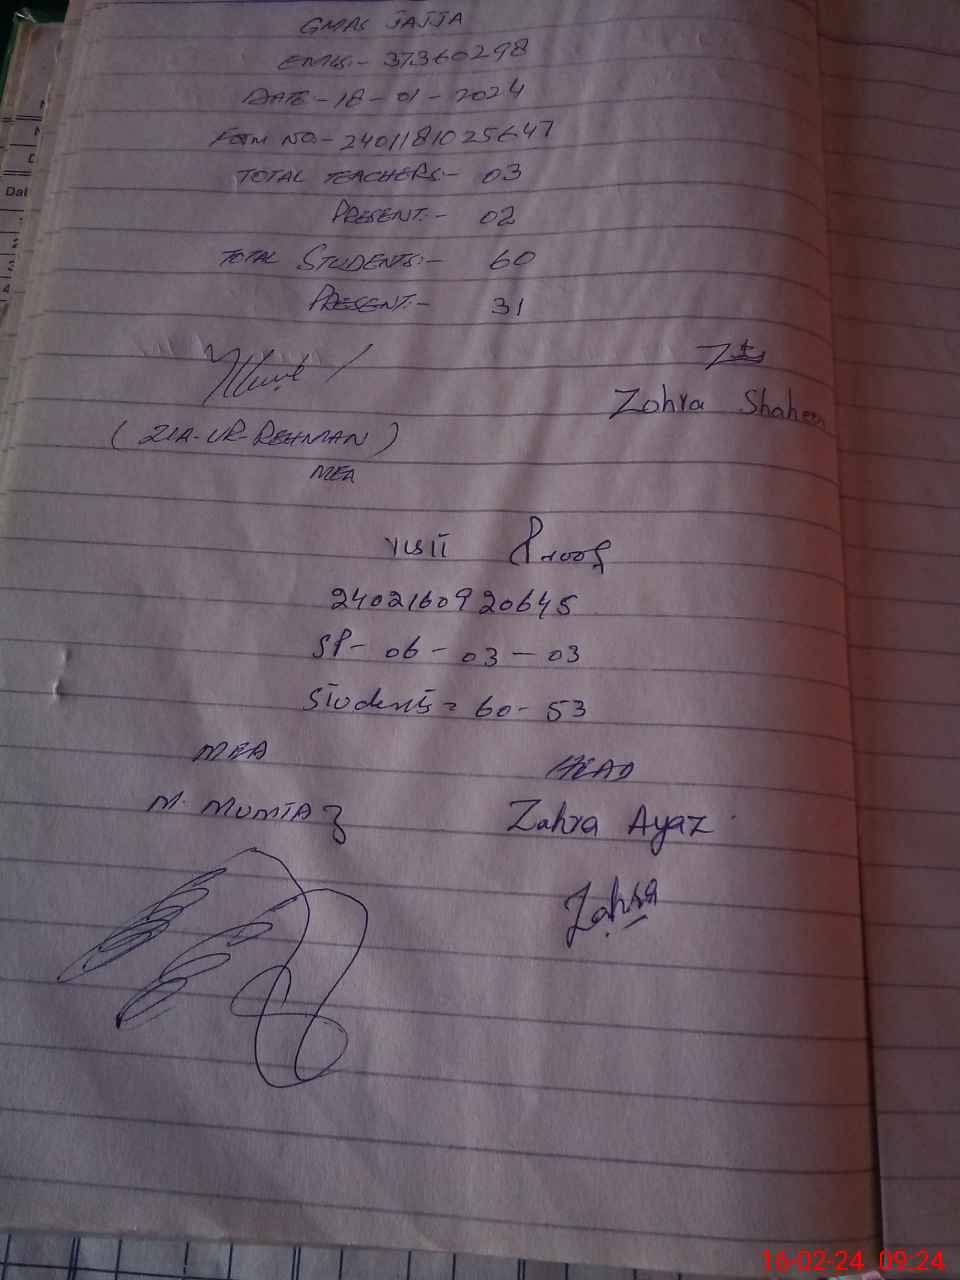 GMPS JAJJA
EMIS:- 37360298
DATE - 18 - 01 - 2024
FORM NO:- 2401181025647
TOTAL TEACHERS:- 03
PRESENT:- 02
TOTAL STUDENTS:- 60
PRESENT:- 31
Zohra Shaheen
(ZIA-UR-REHMAN)
MEA
Visit Proof
2402160920645
SP- 06 - 03 - 03
Students = 60 - 53
MEA HEAD
M. MUMTAZ Zahra Ayaz
Zahra
Dat
16-02-24 09:24